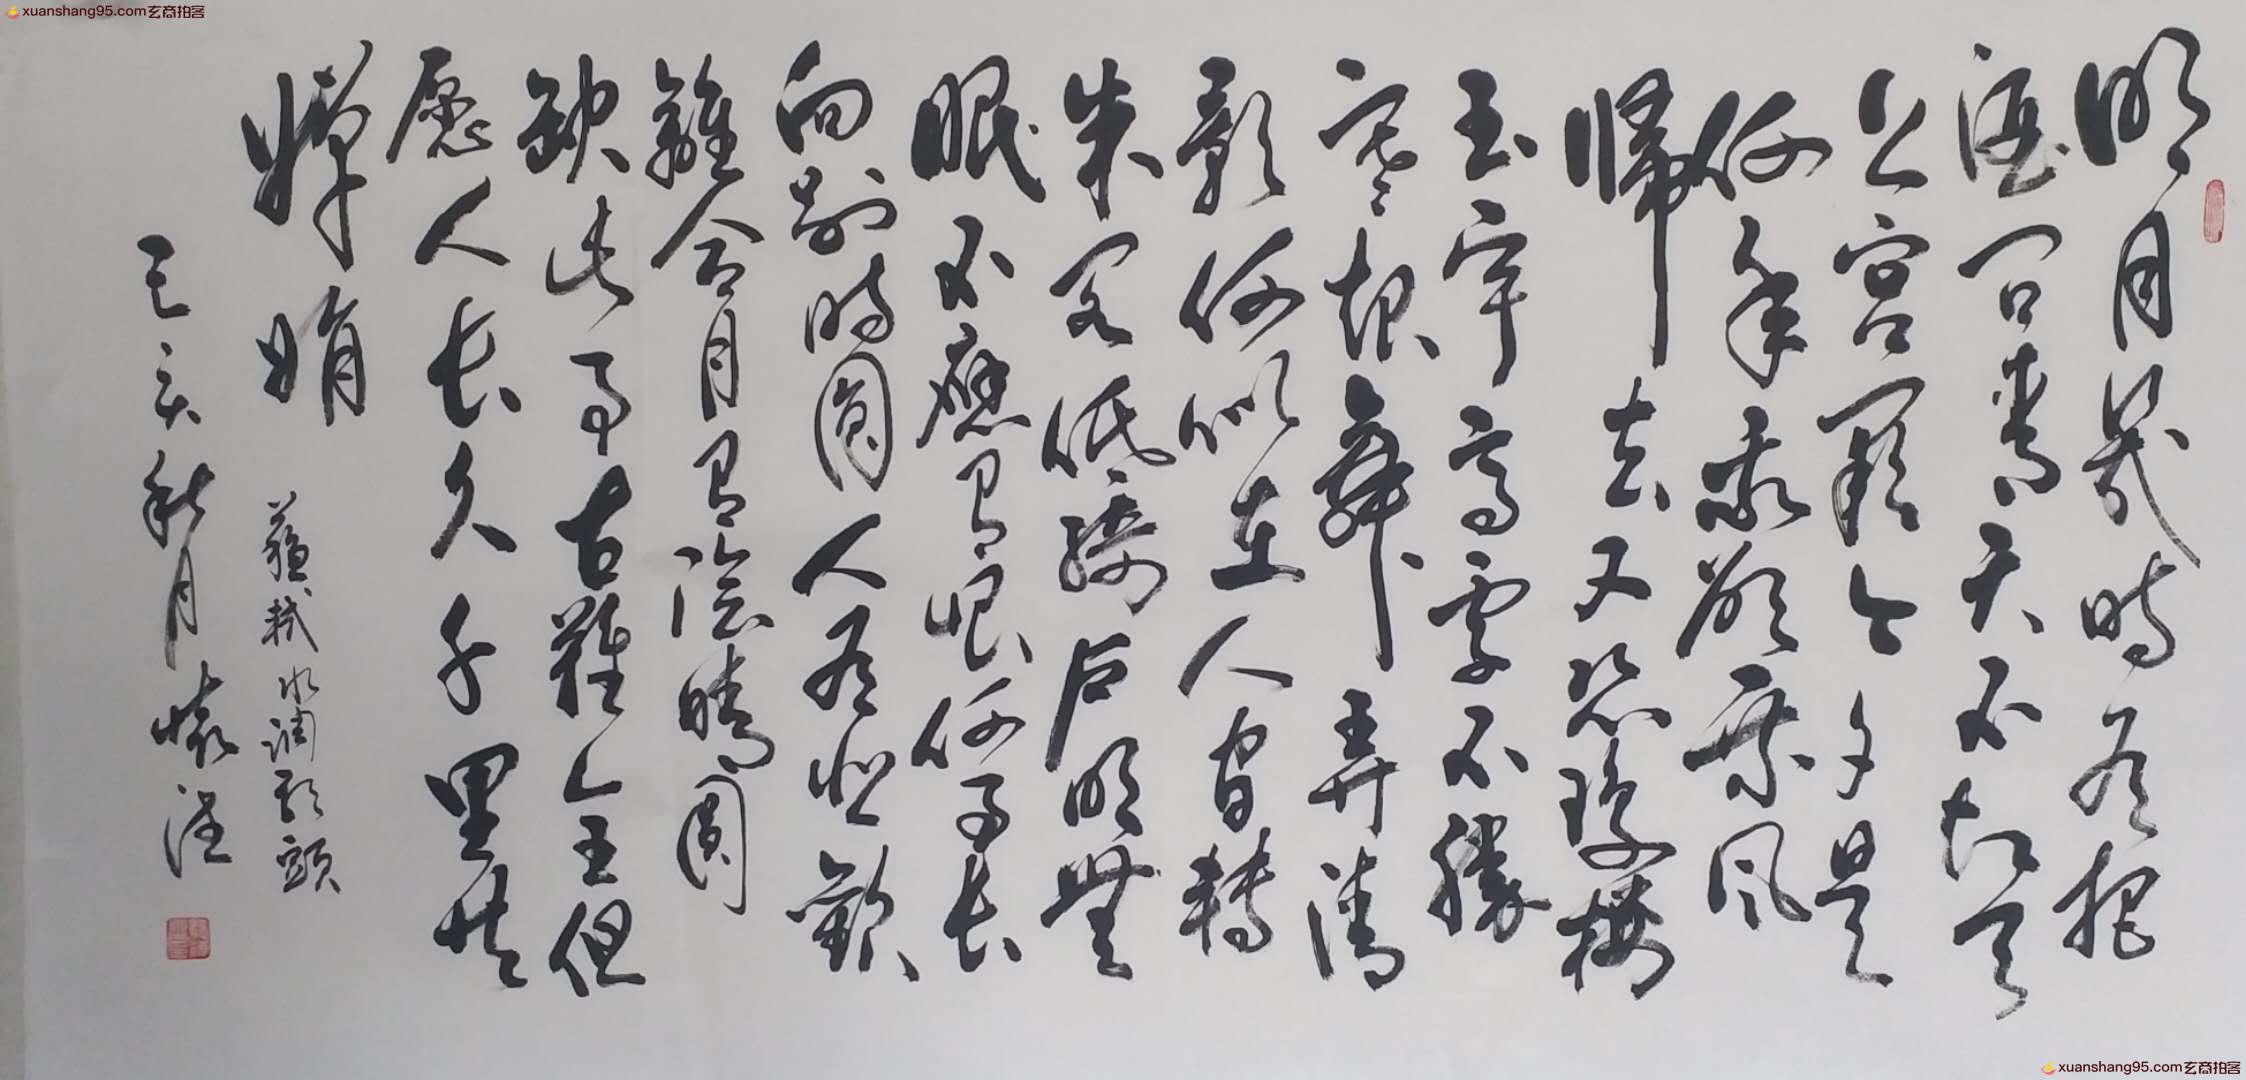 xuanshang95.com玄商拍客
明月幾時有把
酒问青天不知天
上宫闕今夕是
何年我欲乘风
歸去又恐瓊樓
玉宇高處不勝
寒起舞弄清
影何似在人间轉
朱阁低綺户明無
眠不應有恨何事长
向别時圓人有悲歡
離合月有陰晴圓
缺此事古難全但
愿人长久千里共
嬋娟
蘇軾水调歌頭
己亥秋月懷
xuanshang95.com玄商拍客